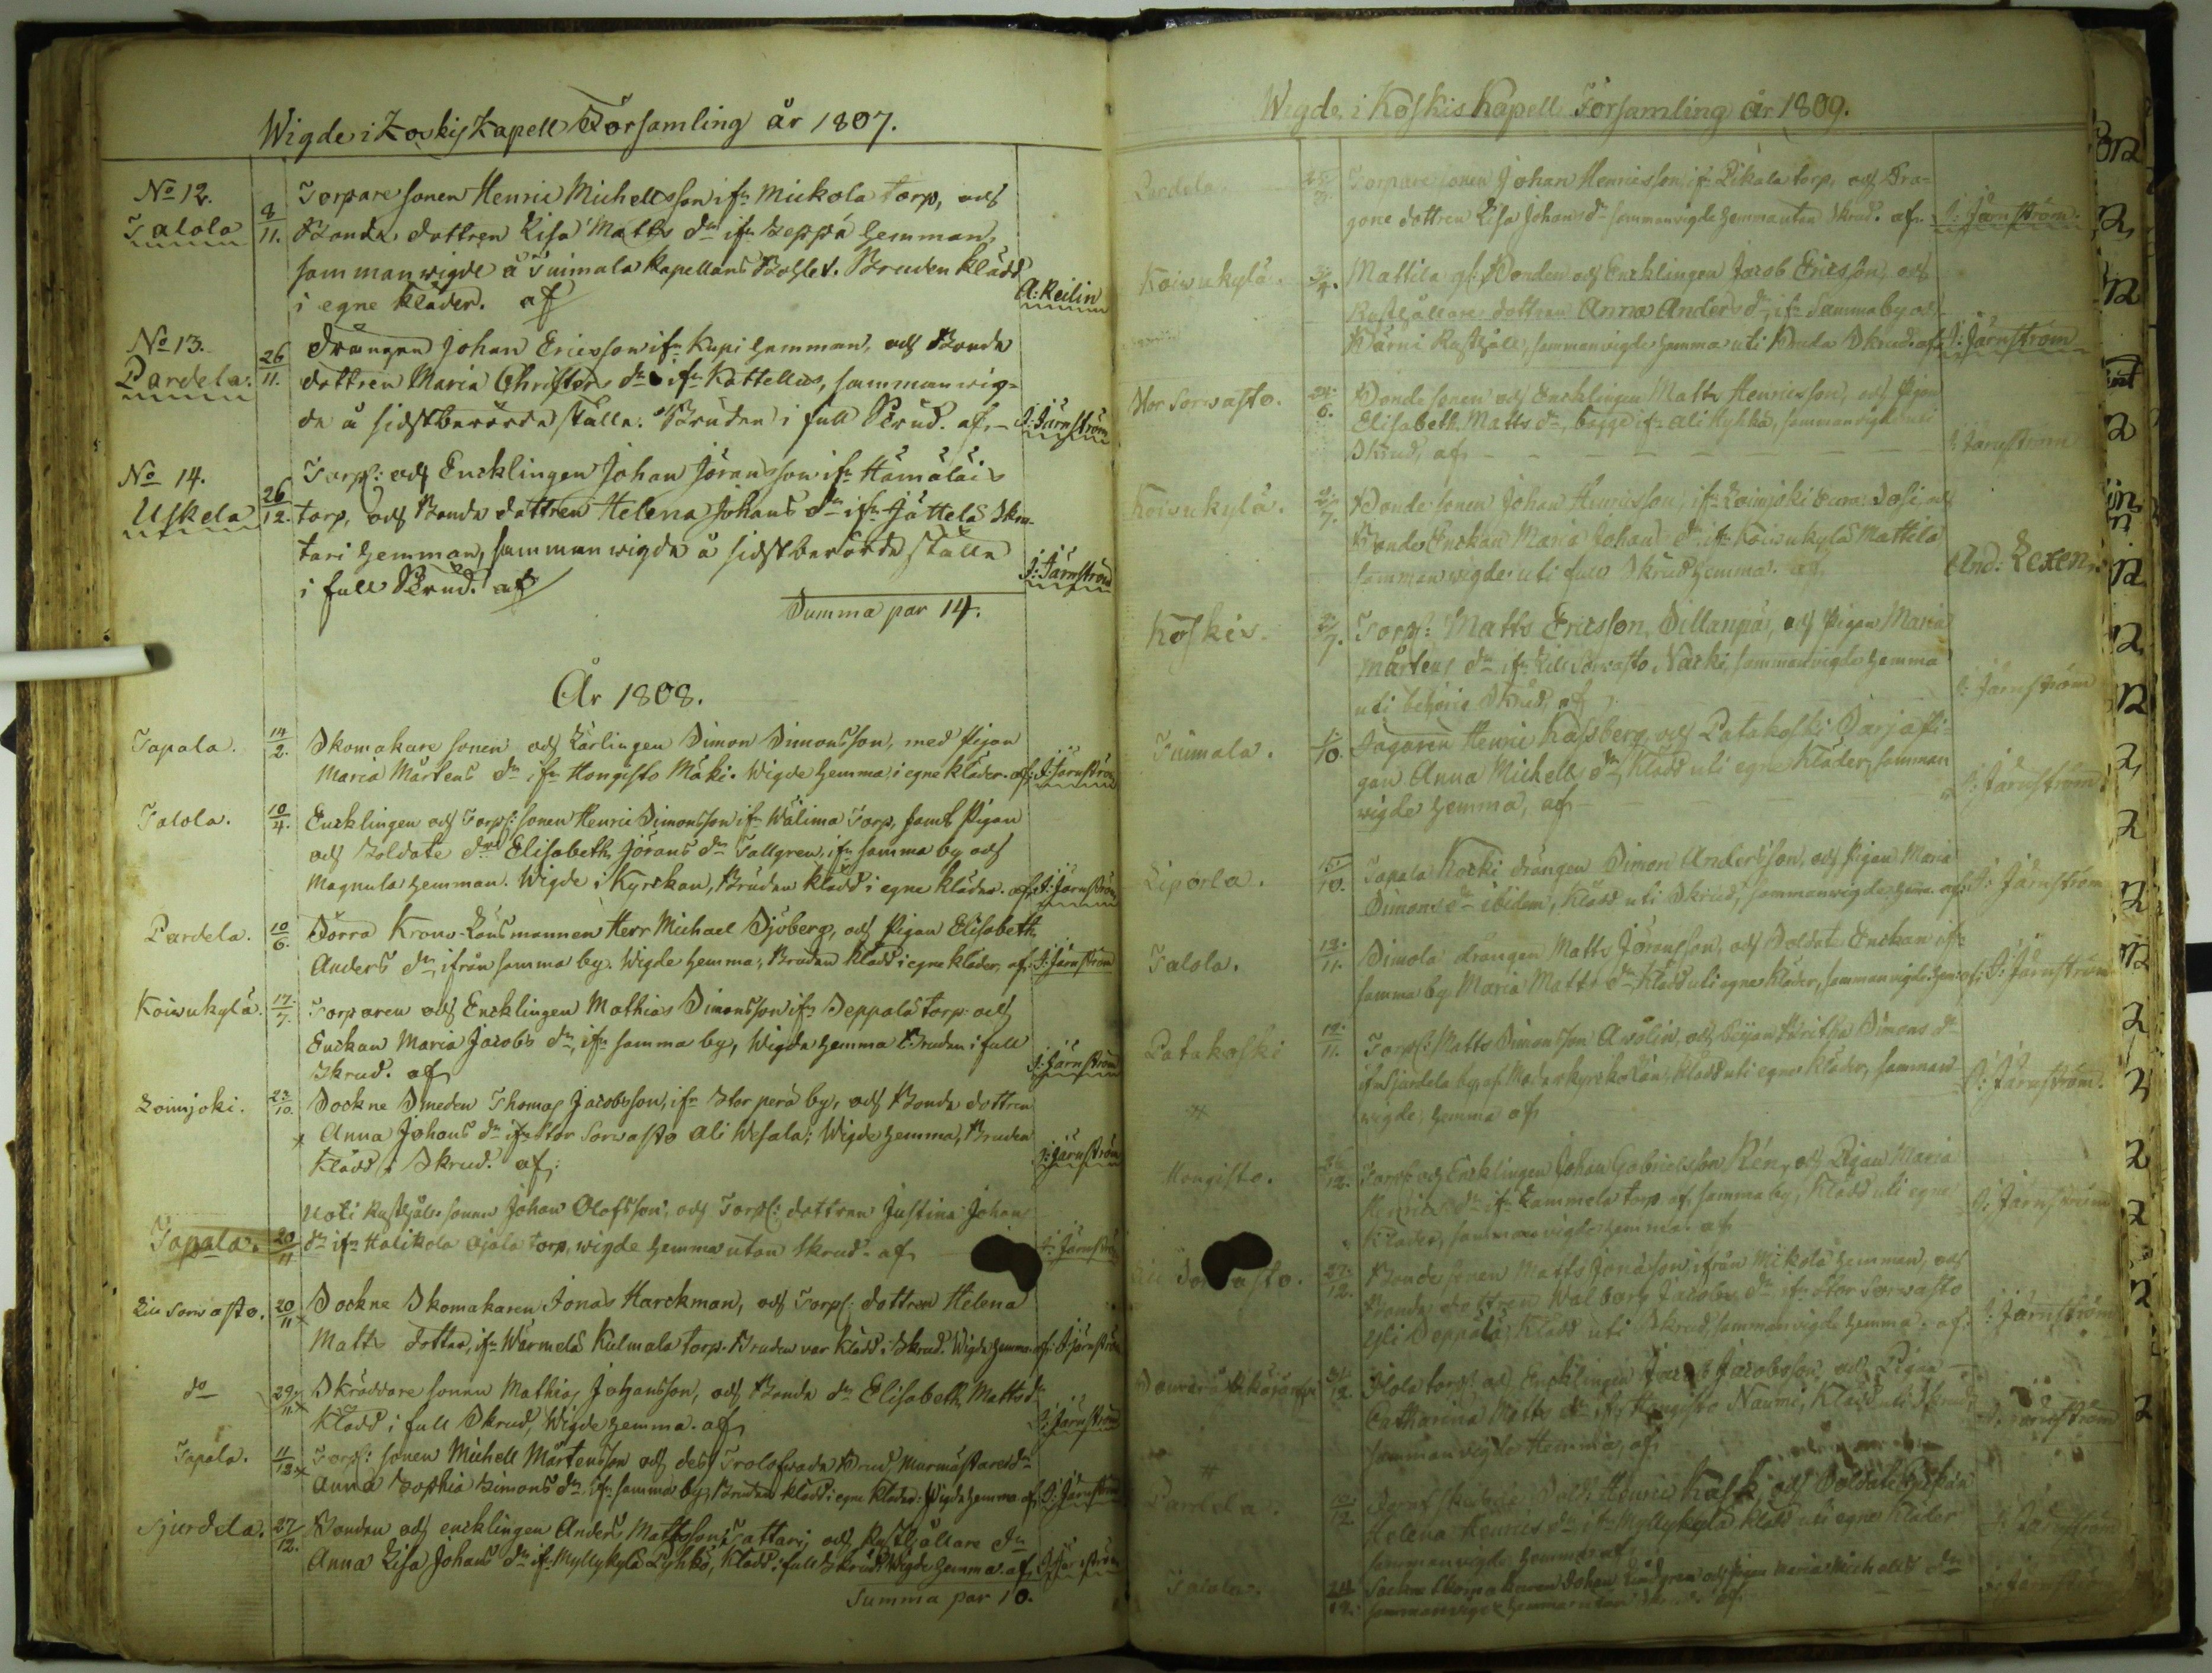 Wigde i Koskis Kapell Församling år 1807.
No 12.
Talola
8/11.
Torpare sonen Henric Michellsson ifn Mickola torp, och
Bonde dottren Lisa Matts dr ifn Seppä hemman,
sammanwigde å Tuimala Kapellans Bohlet. Bruden klädd
i egne kläder. af
A: Reilin
No 13.
Pardela.
26/11.
Drängen Johan Ericsson ifn Kupi hemman, och Bonde
dottren Maria Christers dr ifn Kattelus, samman wig-
de å sidstberörde ställe. Bruden i full Skrud. af
I: Järnström
No 14.
Uskela
26/12.
Torp: och Encklingen Johan Jöransson ifn Hämäläis
torp, och Bonde dottren Helena Johans dr ifn Hättelä
tari hemman, samman wigde å sidstberörde ställe
i full Skrud. af
I: Järnström
Summa par 14.
År 1808.
Tapala.
14/2.
Skomakare sonen och Karlingen Simon Simonsson, med Pigan
Maria Mårtens dr ifn Hongisto Mäki. Wigde hemma i egne kläder. af I: Järnström
Talola.
10/4.
Encklingen och Torp: sonen Henric Simonsson ifn Wälimä Torp, samt Pigan
och Soldate dr Elisabeth Jörans dr Tallgren, ifn samma by och
Magnula hemman. Wigde i Kyrckan, Bruden klädd i egne kläder. af I: Järnström
Pardela.
10/6.
Förra Krono-Länsmannen Herr Michael Sjöberg, och Pigan Elisabeth
Anders dr, ifrån samma by. Wigde hemma, Bruden klädd i egne kläder, af I: Järnström
Koiwukylä.
17/7.
Torparen och Encklingen Mathias Simonsson ifn Seppälä torp och
Enckan Maria Jacobs dr, ifn samma by, Wigde hemma Bruden i full
Skrud. af
I: Järnström
Loimjoki.
23/10.
Sockne Smeden Thomas Jacobsson, ifn Storperä by, och Bonde dottren
Anna Johans dr ifn Stor Sorwasto Ali Wesala; Wigde hemma, Bruden
klädd i Skrud. af
I: Järnström
Tapala.
20/11
Uoti Rusthåll: sonen Johan Olofsson, och Torp: dottren Justina Johans
dr ifn Halikola Ojala torp, wigde hemma utan Skrud. af
I: Järnström
Lill Sorwasto.
20/11
Sockne Skomakaren Jonas Harckman, och Torp: dottren Helena
Matts dotter, ifn Wärmelä Kulmala torp. Bruden var klädd i Skrud. Wigde hemma af: I: Järnström
do
29/11
Skräddare sonen Mathias Johansson, och Bonde dr Elisabeth Matts dr
klädd i full Skrud, Wigde hemma. af
I: Järnström
Tapala.
11/12
Torp: sonen Michell Mårtensson och dess Trolofwade Brud, Murmästare dr
Anna Sophia Simons dr, ifn samma by, Bruden klädd i egne kläder: Wigde hemma af I: Järnström
Sjurdela.
27/12.
Bonden och encklingen Anders Mattsson Tattari, och Rusthållare dr
Anna Lisa Johans dr ifn Myllykylä Lyhkä, klädd i full Skrud Wigde hemma. af I: Järnström
Summa par 10.
Wigde i Koskis Kapell Församling år 1809.
Pardela
Torpare sonen Johan Henricsson, ifn Pikala torp, och Dra-
gone dottren Lisa Johans dr sammanwigde hemma utan Skrud. af I: Järnström.
Koiwukylä.
Mattila Bonden och Encklingen Jacob Ericsson, och
Rusthållare dottren Anna Anders dr, ifn Samma by och
Wärri Rusthåll, sammanwigde hemma uti Skrud. af I: Järnström
Stor Sorwasto.
24/6.
Bonde sonen och Encklingen Matts Henricsson, och Pigan
Elisabeth Matts dr, bägge ifn Ali Hyhkä, sammanwigde uti
Skrud, af
I: Järnström
Koiwukylä.
Bonde sonen Johan Henricsson, ifn Loimjoki
Bonde Enckan Maria Johans dr ifn Koiwukylä Mattila
sammanwigde uti full Skrud hemma. af
And: Lexen.
Koskis.
Torp: Matts Ericsson, Sillanpää, och Pigan Maria
Mårtens dr ifn Lill Sorwasto Nacki, sammanwigde hemma
uti behörig Skrud, af
I: Järnström
Tuimala.
Jägaren Henric Kassberg, och Patakoski
gan Anna Michells dr, klädd uti egne Kläder, samman
wigde hemma, af
I: Järnström
Liporla.
15/10.
Tapala Kocki drängen Simon Andersson, och Pigan Maria
Simons dr ibidem, klädd uti Skrud, sammanwigde hema. af I: Järnström
Talola.
12/11.
Simola drängen Matts Jöransson, och Soldate Enckan ifn
samma by Maria Matts dr klädd uti egne kläder, sammanwigde hem: af I: Järnström
Patakoski
19/11.
Torp: Matts Simonsson Awolin och Pigan Simons dr
ifn Sjurdela by, af Moderkyrcko klädd uti egne kläder, samman
wigde hemma af
I: Järnström.
Hongisto.
Torp: och Encklingen Johan Gabrielsson Rén, och Pigan Maria
Henrics dr ifn Lammela torp af samma by, klädd uti egne
kläder, sammanwigde hemma. af
I: Järnström
Sorwasto.
27/12.
Bonde sonen Matts Jonasson ifrån Mikola hemman, och
Bonde dottren Walborg Jacobs dr ifn Stor Sorwasto
Yli Seppälä, klädd uti Skrud, sammanwigde hemma. af
I: Järnström
31/12
torp: och Encklingen Jacob Jacobsson, och Pigan
Catharina Matts dr ifn Hongisto Naumi, Klädd uti Skrud,
sammanwigde Hemma, af
I: Järnström
Pardela.
Henric Kask, och Soldate Enckan
Helena Henrics dr ifn Myllykylä klädd uti egne kläder
sammanwigde hemma af
I: Järnström
Talola.
Sockne Skomakaren Johan Lindgren och Pigan Maria Michells dr
sammanwigde hemma utan Skrud af
I: Järnström